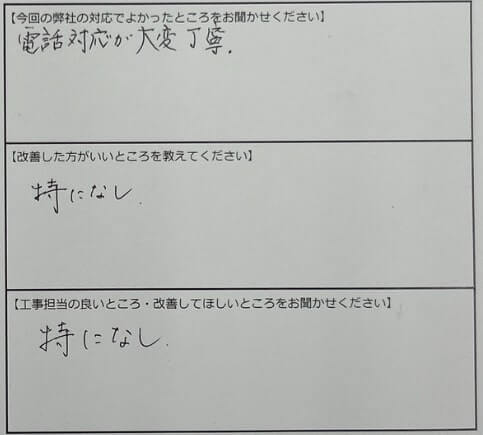 【今回の弊社の対応でよかったところをお聞かせください】
電話対応が大変丁寧.
【改善した方がいいところを教えてください】
特になし.
【工事担当の良いところ・改善してほしいところをお聞かせください】
特になし.